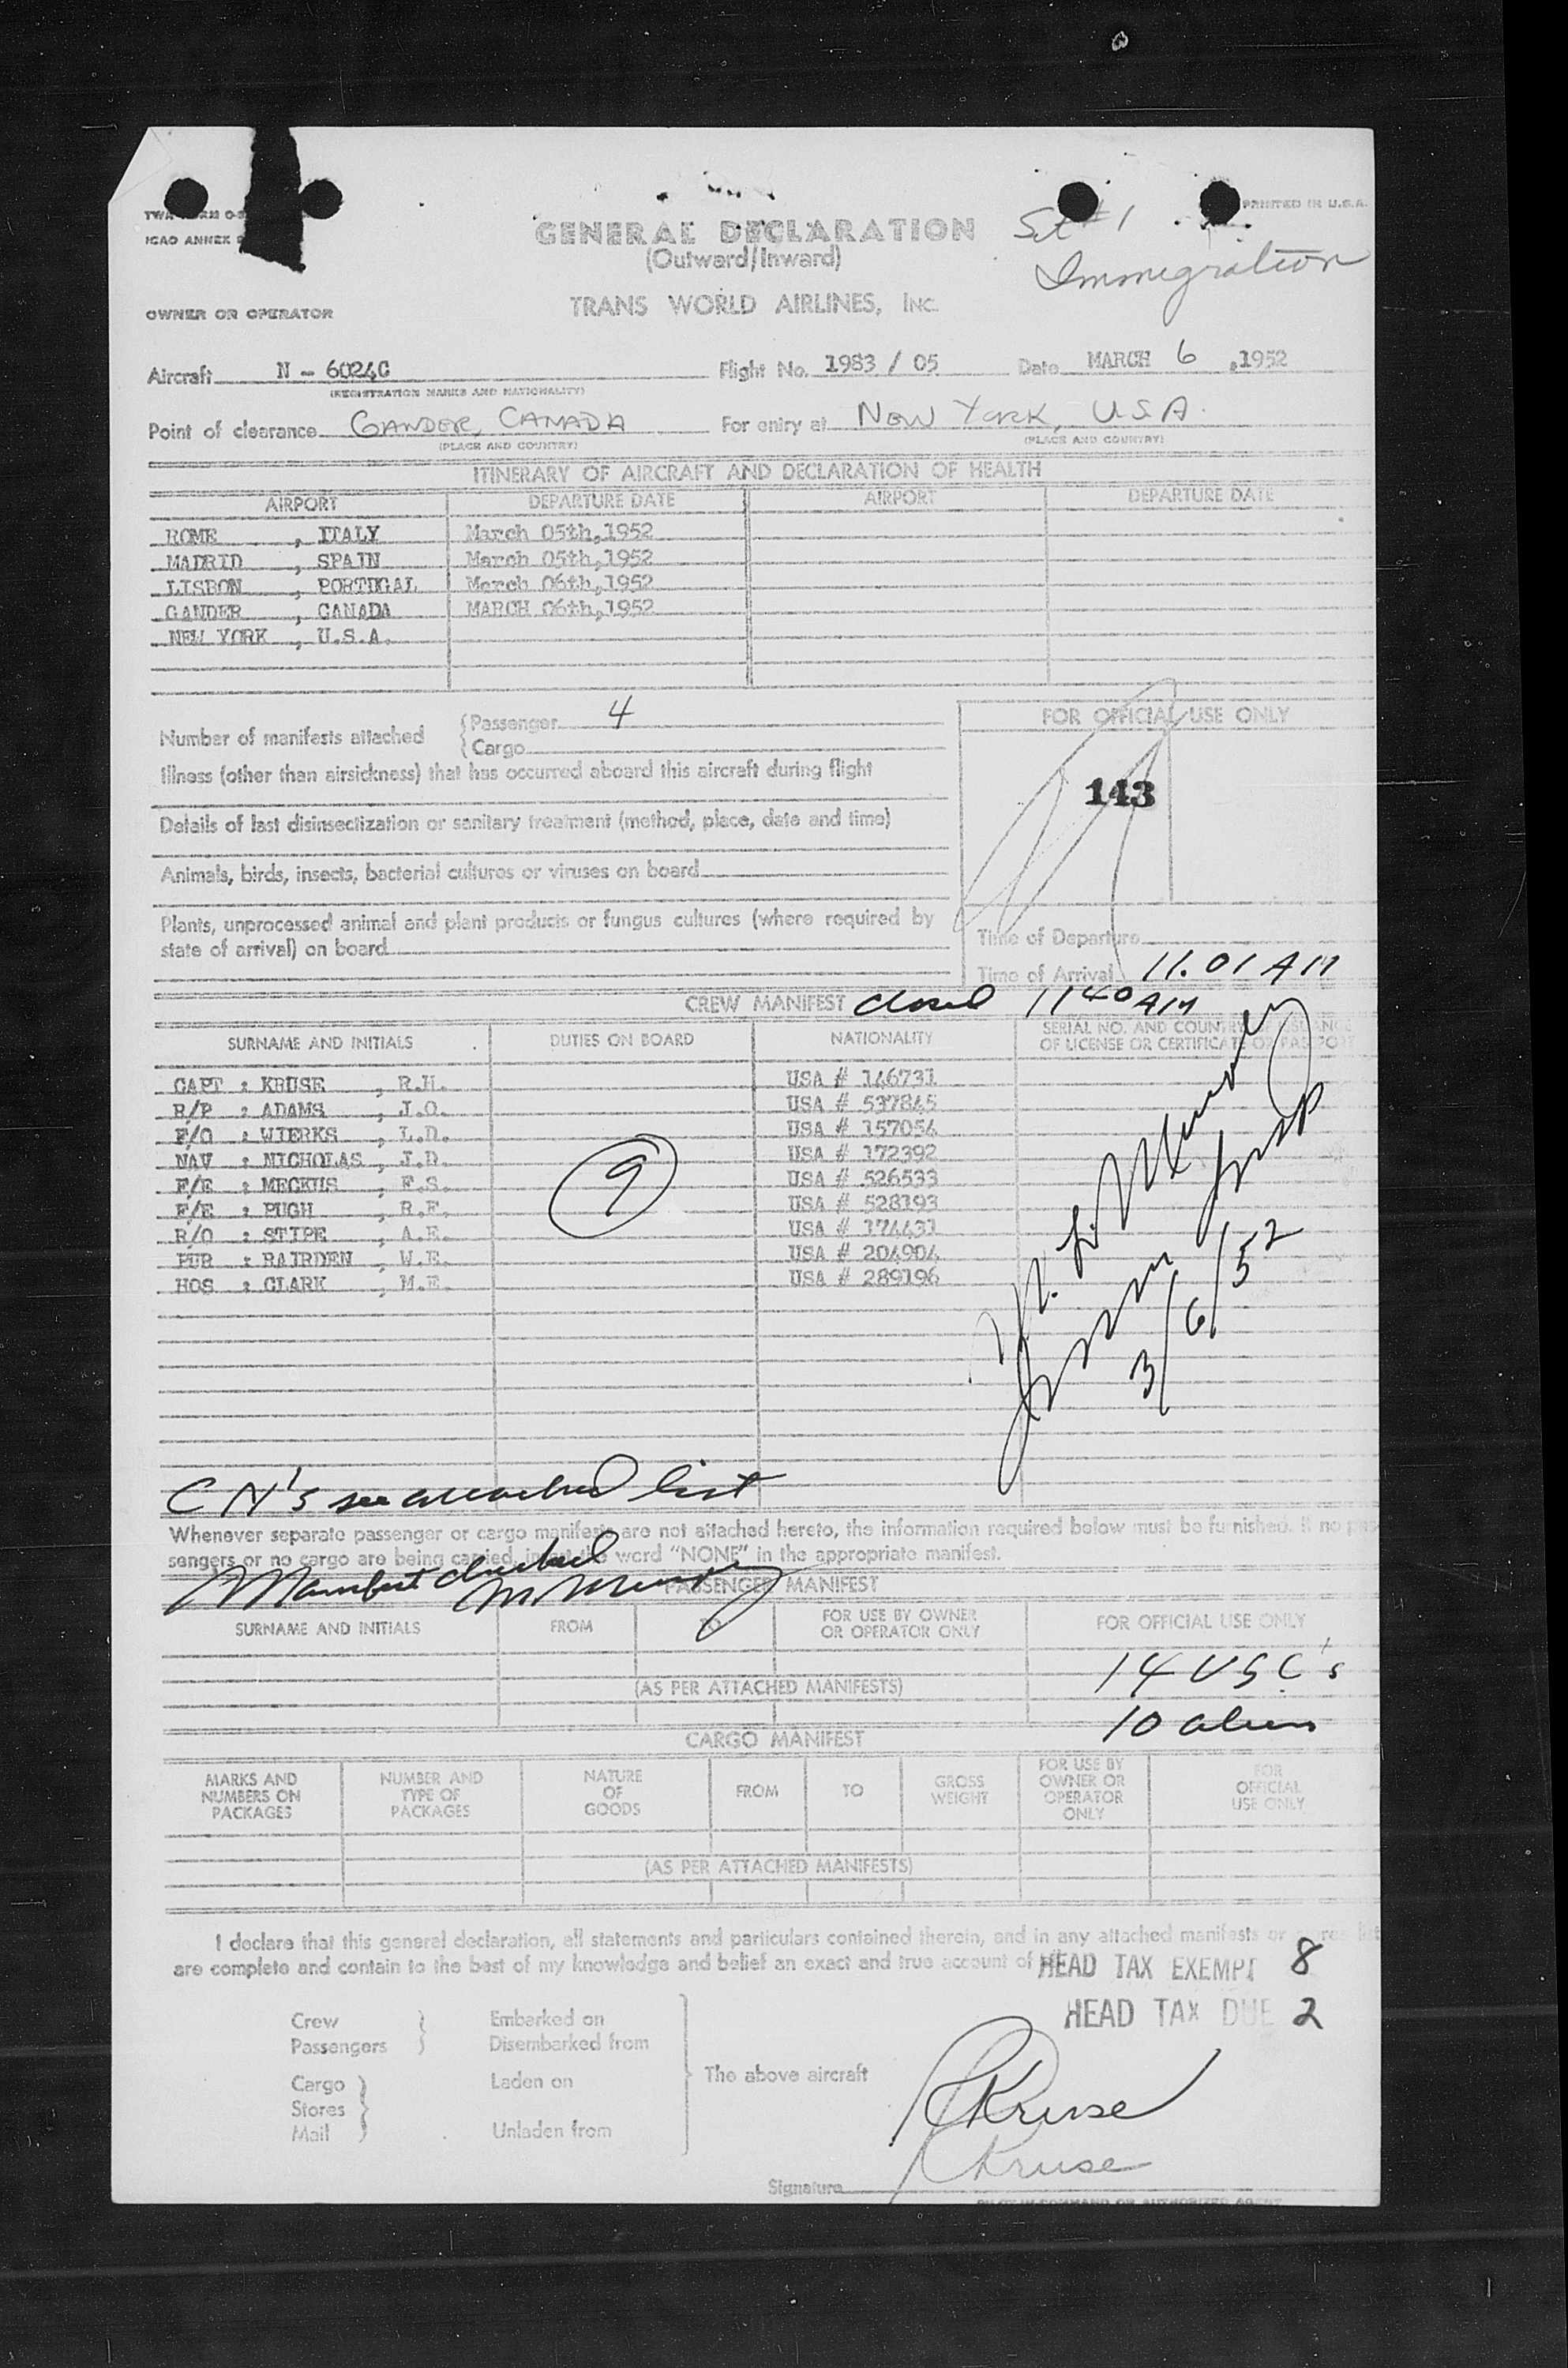 PRINTED IN U.S.A.
ICAO ANNEX
GENERAL DECLARATION
Set #1
(Outward/Inward)
Immigration
OWNER OR OPERATOR
TRANS WORLD AIRLINES, INC.
Aircraft N - 6024C Flight No. 1983 / 05 Date MARCH 6 ,1952
(REGISTRATION MARKS AND NATIONALITY)
Point of clearance GANDER, CANADA For entry at NEW YORK, U.S.A.
(PLACE AND COUNTRY) (PLACE AND COUNTRY)
ITINERARY OF AIRCRAFT AND DECLARATION OF HEALTH
AIRPORT DEPARTURE DATE AIRPORT DEPARTURE DATE
ROME , ITALY March 05th,1952
MADRID , SPAIN March 05th,1952
LISBON , PORTUGAL March 06th,1952
GANDER , CANADA MARCH 06th,1952
NEW YORK , U.S.A.
Number of manifests attached { Passenger 4
{ Cargo
FOR OFFICIAL USE ONLY
143
Illness (other than airsickness) that has occurred aboard this aircraft during flight
Details of last disinsectization or sanitary treatment (method, place, date and time)
Animals, birds, insects, bacterial cultures or viruses on board
Plants, unprocessed animal and plant products or fungus cultures (where required by
state of arrival) on board
Time of Departure
Time of Arrival 11.01 AM
CREW MANIFEST closed 1140 AM
SURNAME AND INITIALS DUTIES ON BOARD NATIONALITY SERIAL NO. AND COUNTRY OF ISSUANCE
OF LICENSE OR CERTIFICATE OR PASSPORT
CAPT : KRUSE , R.H. USA # 146731
R/P : ADAMS , J.O. USA # 537845
F/O : WIERKS , L.D. USA # 157054
NAV : NICHOLAS , J.D. USA # 172392
F/E : MECKUS , F.S. USA # 526533
F/E : PUGH , R.F. USA # 528193
R/O : STIPE , A.E. USA # 174431
PUR : RAIRDEN , W.E. USA # 204904
HOS : CLARK , M.E. USA # 289196
9
3/6/52
C N's see attached list
Whenever separate passenger or cargo manifests are not attached hereto, the information required below must be furnished. If no pas-
sengers or no cargo are being carried, insert the word "NONE" in the appropriate manifest.
Manifest checked
PASSENGER MANIFEST
SURNAME AND INITIALS FROM TO FOR USE BY OWNER
OR OPERATOR ONLY FOR OFFICIAL USE ONLY
14 USC's
(AS PER ATTACHED MANIFESTS)
10 aliens
CARGO MANIFEST
MARKS AND
NUMBERS ON
PACKAGES NUMBER AND
TYPE OF
PACKAGES NATURE
OF
GOODS FROM TO GROSS
WEIGHT FOR USE BY
OWNER OR
OPERATOR
ONLY FOR
OFFICIAL
USE ONLY
(AS PER ATTACHED MANIFESTS)
I declare that this general declaration, all statements and particulars contained therein, and in any attached manifests or
are complete and contain to the best of my knowledge and belief an exact and true account of
HEAD TAX EXEMPT 8
HEAD TAX DUE 2
Crew } Embarked on
Passengers } Disembarked from
The above aircraft
Cargo } Laden on
Stores
Mail } Unladen from
Kruse
Kruse
Signature
PILOT-IN-COMMAND OR AUTHORIZED AGENT